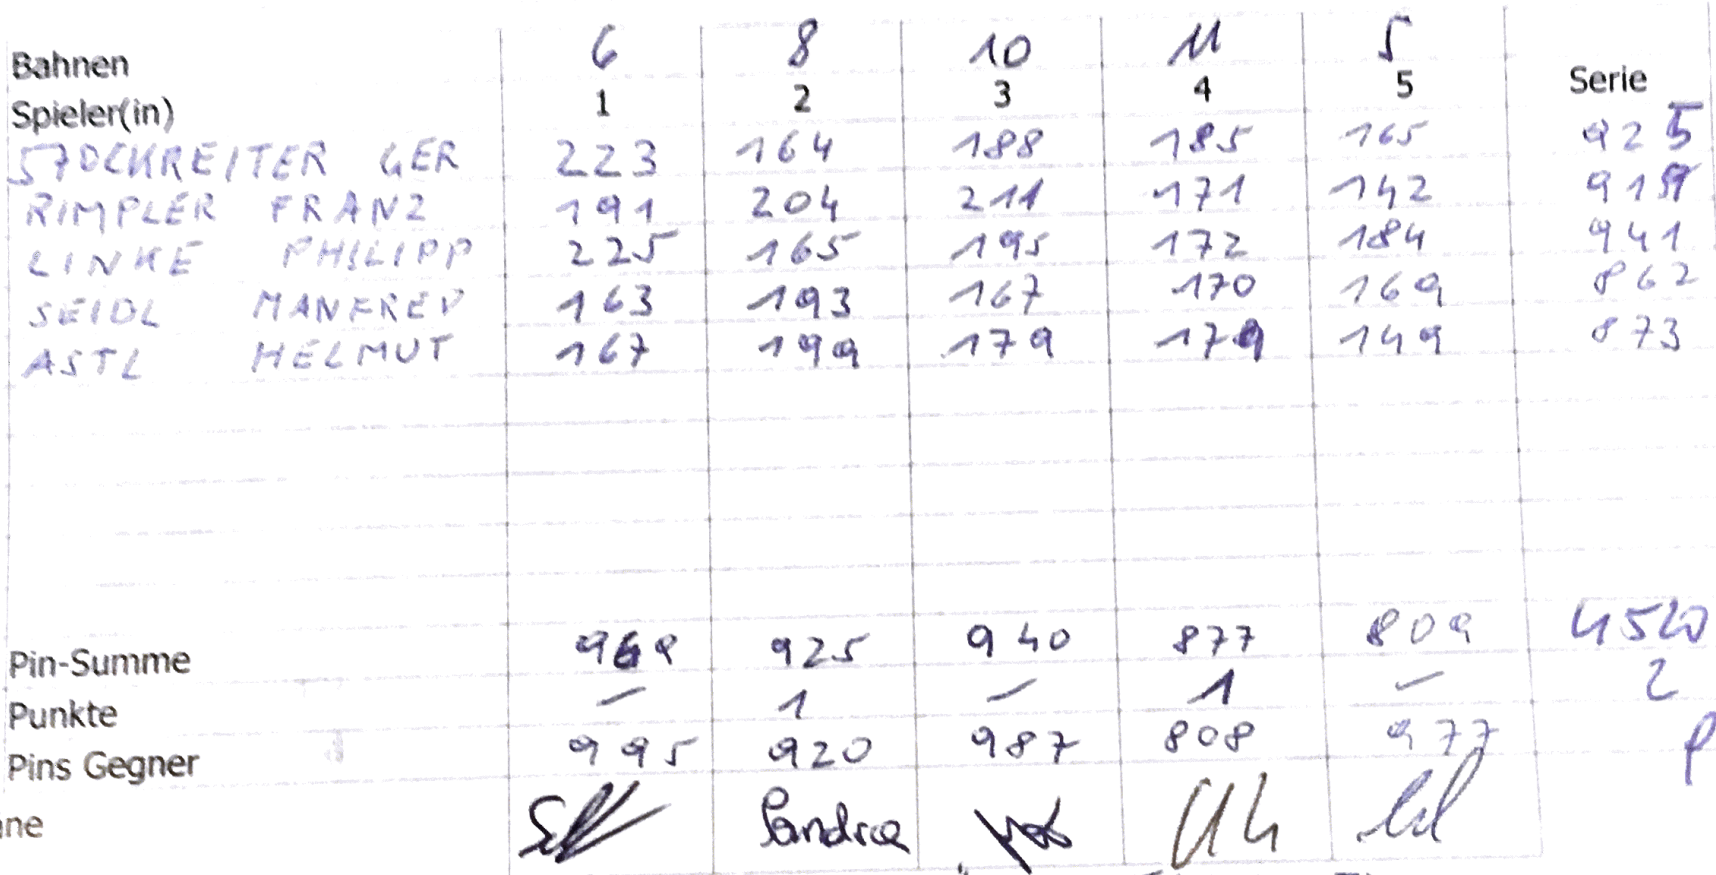 Bahnen 6 8 10 11 5
Spieler(in) 1 2 3 4 5 Serie
STOCKREITER GER 223 164 188 185 165 925
RIMPLER FRANZ 191 204 211 171 142 919
LINKE PHILIPP 225 165 195 172 184 941
SEIDL MANFRED 163 193 167 170 169 862
ASTL HELMUT 167 199 179 179 149 873
Pin-Summe 969 925 940 877 809 4520
Punkte – 1 – 1 – 2
Pins Gegner 995 920 987 808 977
ne Sandra